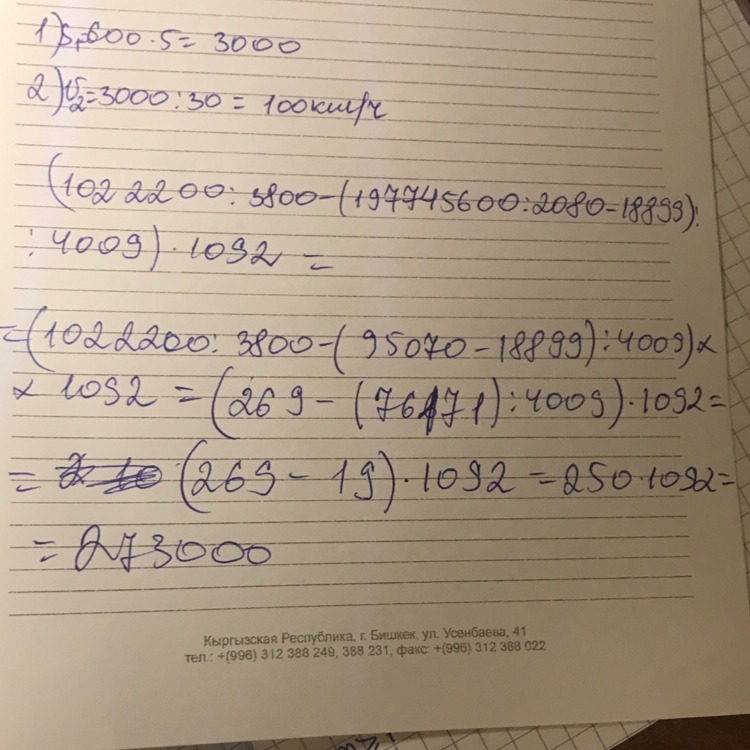 1) S₁=600·5=3000
2) V₂=3000:30=100км/ч
(1022200:3800-(197745600:2080-18899):
:4009)·1092=
=(1022200:3800-(95070-18899):4009)×
×1092=(269-(76171):4009)·1092=
=(269-19)·1092=250·1092=
=273000
Кыргызская Республика, г. Бишкек, ул. Усенбаева, 41
тел.: +(996) 312 388 249, 388 231, факс: +(996) 312 388 022